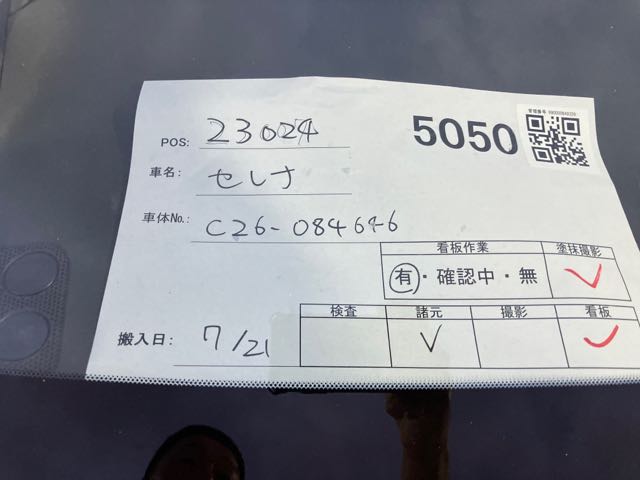 POS: 23024
5050
車名: セレナ
車体No.: C26-084646
看板作業 塗抹撮影
有・確認中・無 ✓
検査 諸元 撮影 看板
搬入日: 7/21 ✓ ✓